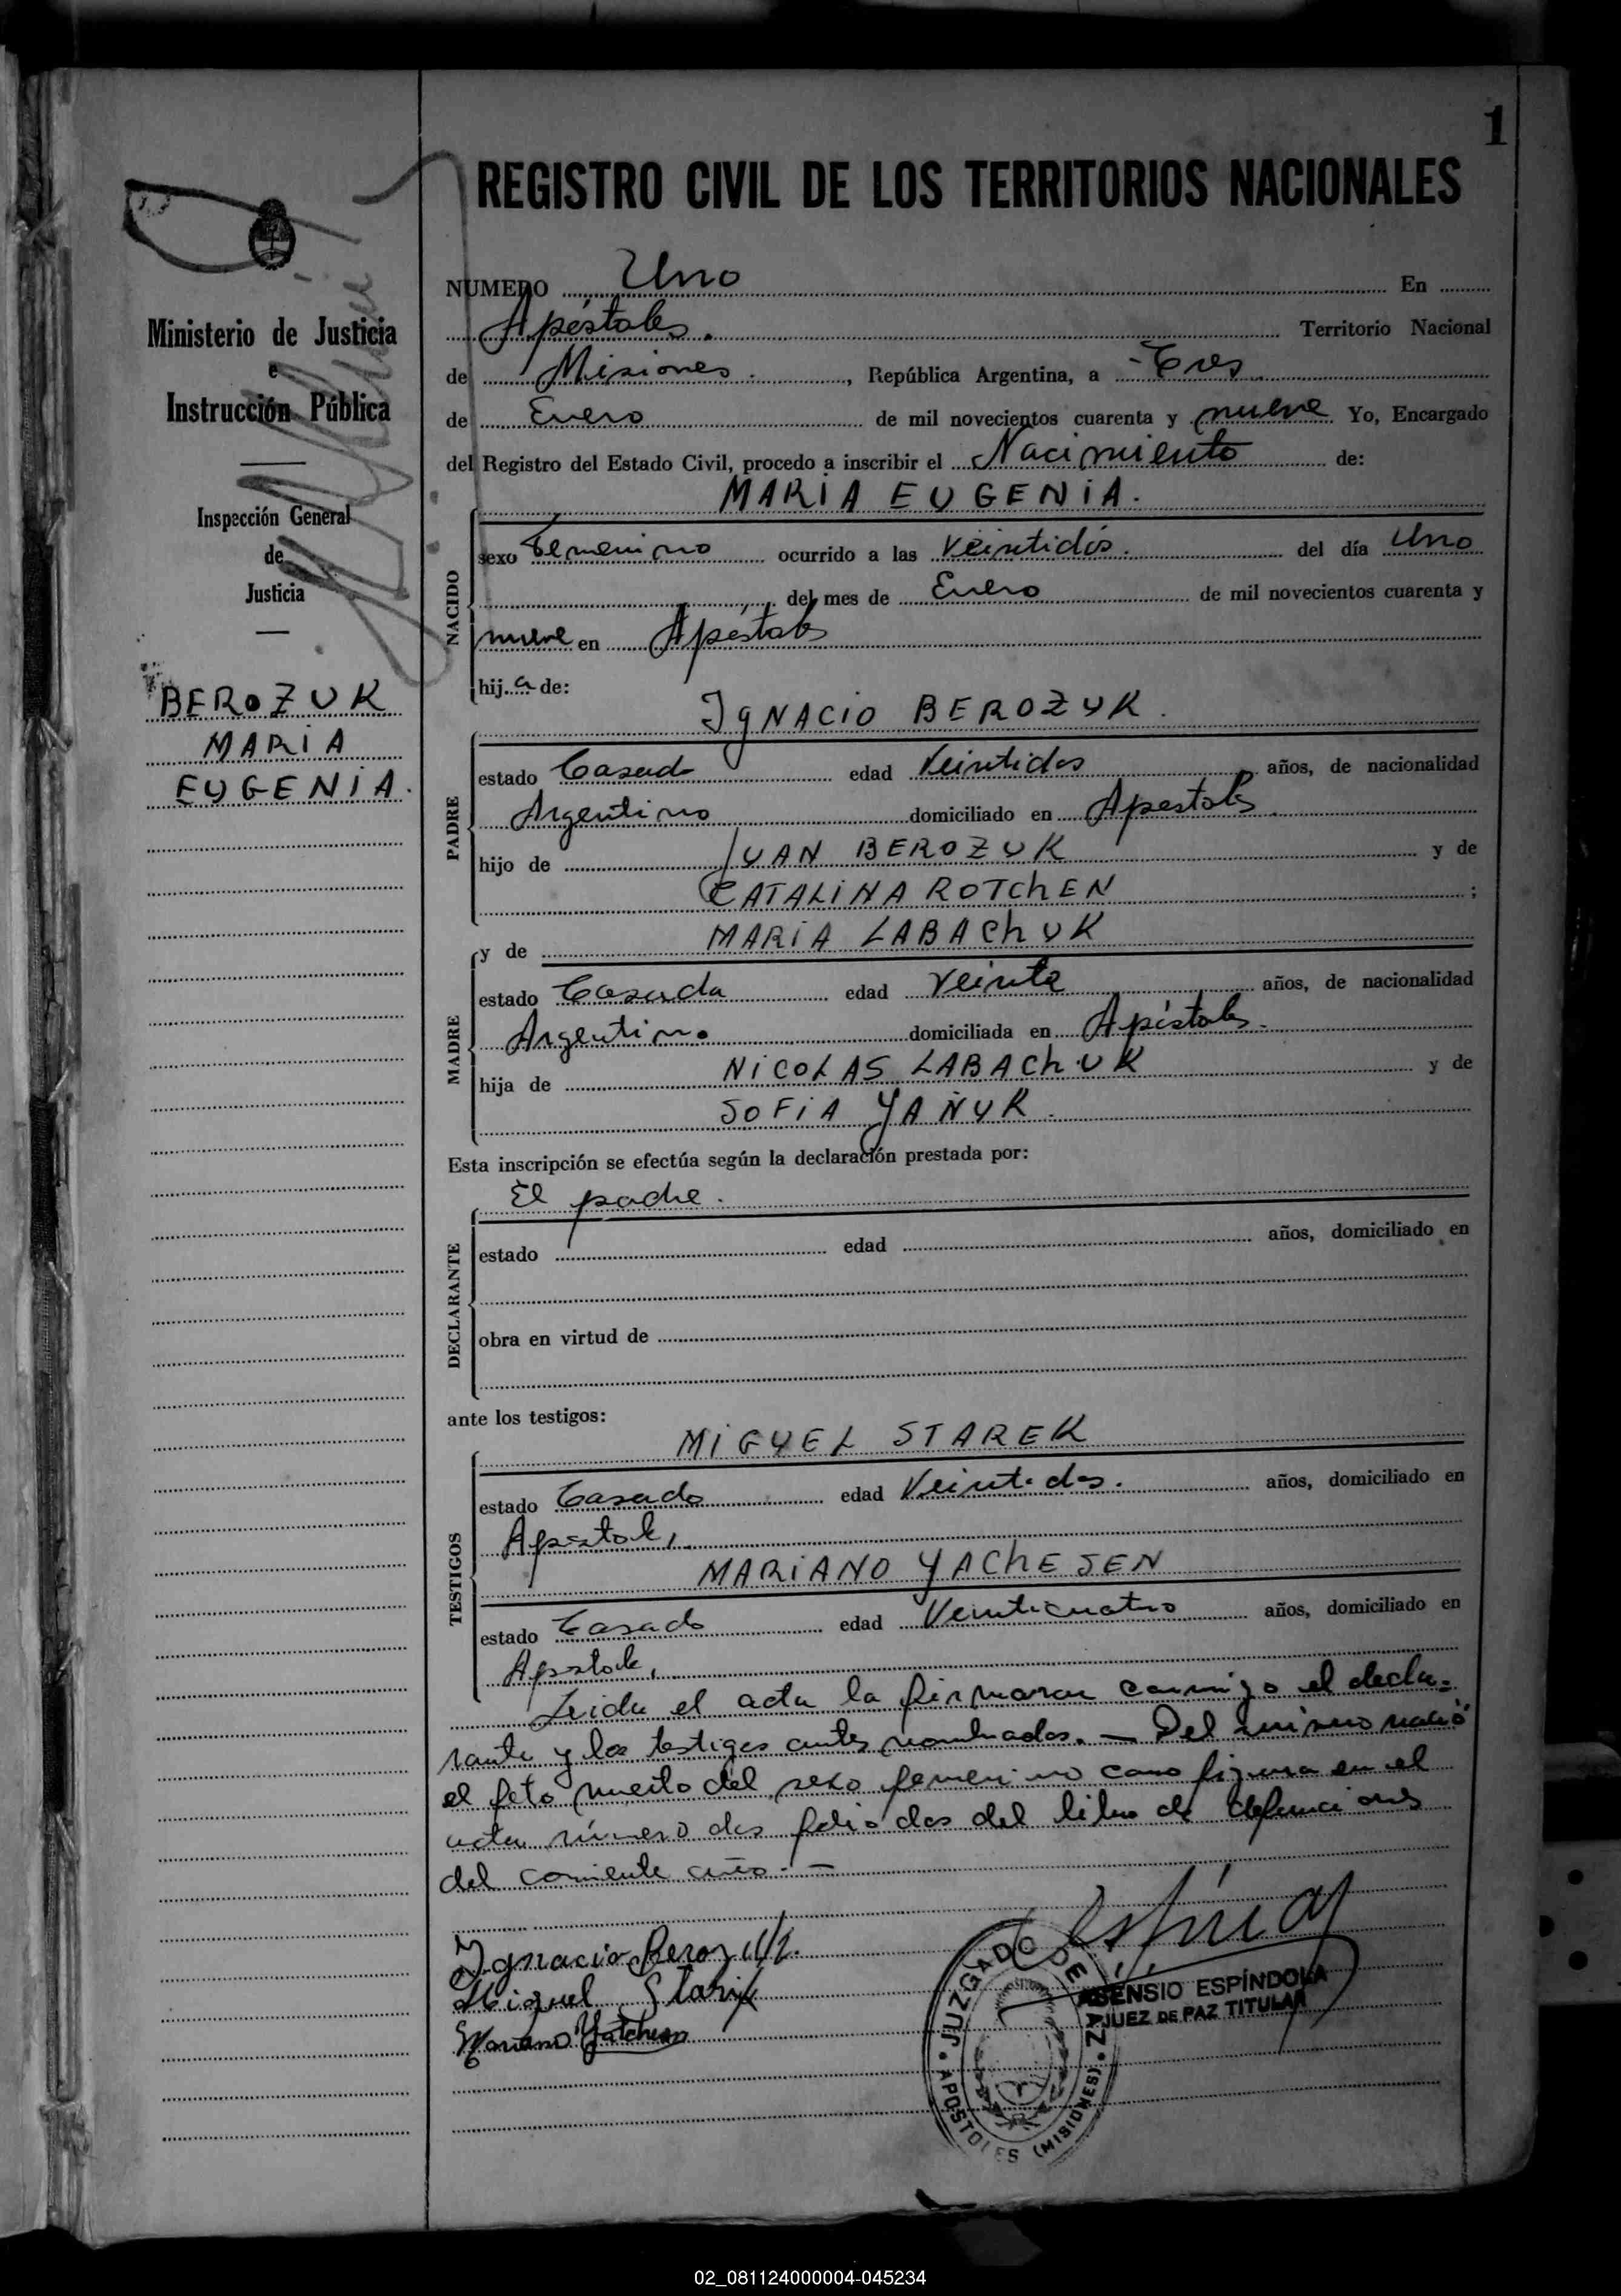 1
REGISTRO CIVIL DE LOS TERRITORIOS NACIONALES
Ministerio de Justicia
e
Instrucción Pública
Inspección General
de
Justicia
BEROZUK
MARIA
EUGENIA.
NUMERO Uno En
Apóstoles. Territorio Nacional
de Misiones, República Argentina, a Tres
de Enero de mil novecientos cuarenta y nueve Yo, Encargado
del Registro del Estado Civil, procedo a inscribir el Nacimiento de:
MARIA EUGENIA.
NACIDO
sexo Femenino ocurrido a las Veintidós. del día Uno
del mes de Enero de mil novecientos cuarenta y
nueve en Apóstoles
hija de:
IGNACIO BEROZUK.
PADRE
estado Casado edad Veintidos años, de nacionalidad
Argentino domiciliado en Apostoles
hijo de JUAN BEROZUK y de
CATALINA ROTChEN ;
y de MARIA LABAChUK
MADRE
estado Casada edad Veinte años, de nacionalidad
Argentina domiciliada en Apóstoles.
hija de NICOLAS LABAChUK y de
SOFIA YAÑUK.
Esta inscripción se efectúa según la declaración prestada por:
El padre.
DECLARANTE
estado edad años, domiciliado en
obra en virtud de
ante los testigos:
MIGUEL STAREK
TESTIGOS
estado Casado edad Veintidos. años, domiciliado en
Apostoles
MARIANO YAChESEN
estado Casado edad Veinticuatro años, domiciliado en
Apostoles
Leida el acta la firmaron conmigo el decla=
rante y los testigos antes nombrados. — Del mismo nació
el feto muerto del sexo femenino como figura en el
acta número dos folio dos del libro de defunciones
del corriente año. —
Ignacio Berozuk.
Miguel Starek
Mariano Yatchesen
JUZGADO DE PAZ
APOSTOLES (MISIONES)
ASENSIO ESPÍNDOLA
JUEZ DE PAZ TITULAR
02_081124000004-045234